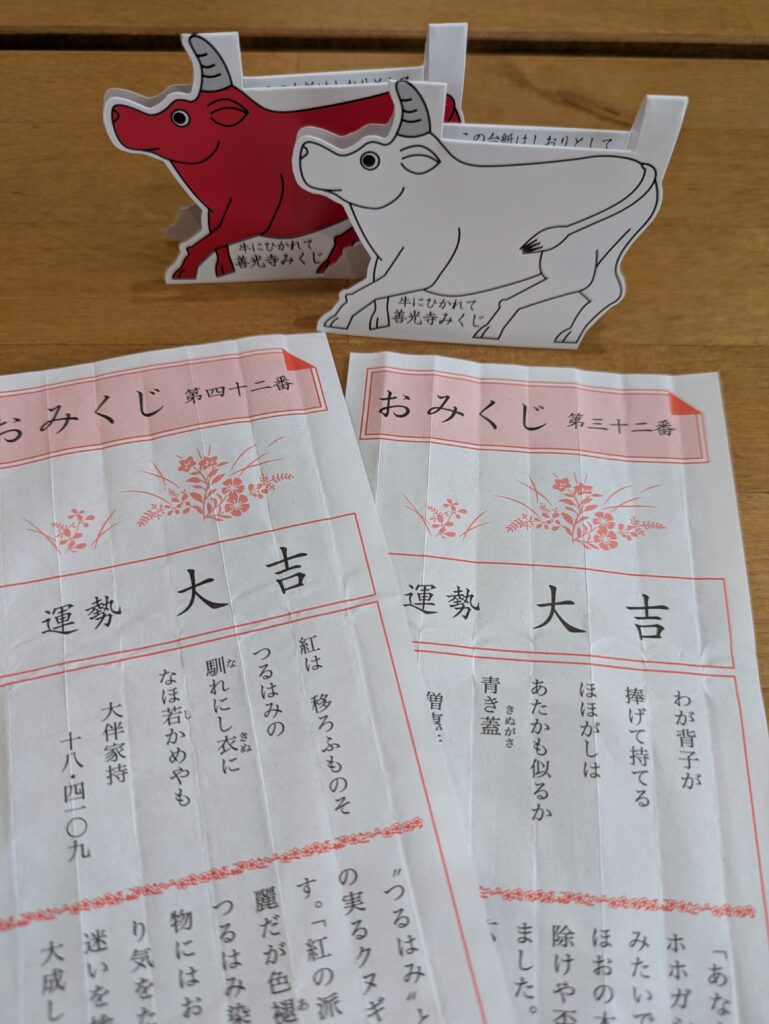 牛にひかれて
善光寺みくじ
この台紙はしおりとして
牛にひかれて
善光寺みくじ
おみくじ 第四十二番
運勢 大吉
紅は 移ろふものそ
つるはみの
馴れにし衣に
なほ若かめやも
大伴家持
十八・四一〇九
〝つるはみ〟と
の実るクヌギ
す。「紅の派
麗だが色褪
つるはみ染
物にはお
り気をた
迷いを
大成し
おみくじ 第三十二番
運勢 大吉
わが背子が
捧げて持てる
ほほがしは
あたかも似るか
青き蓋
僧恵
「あな
ホホガシ
みたいで
ほおの大
除けや
ました。